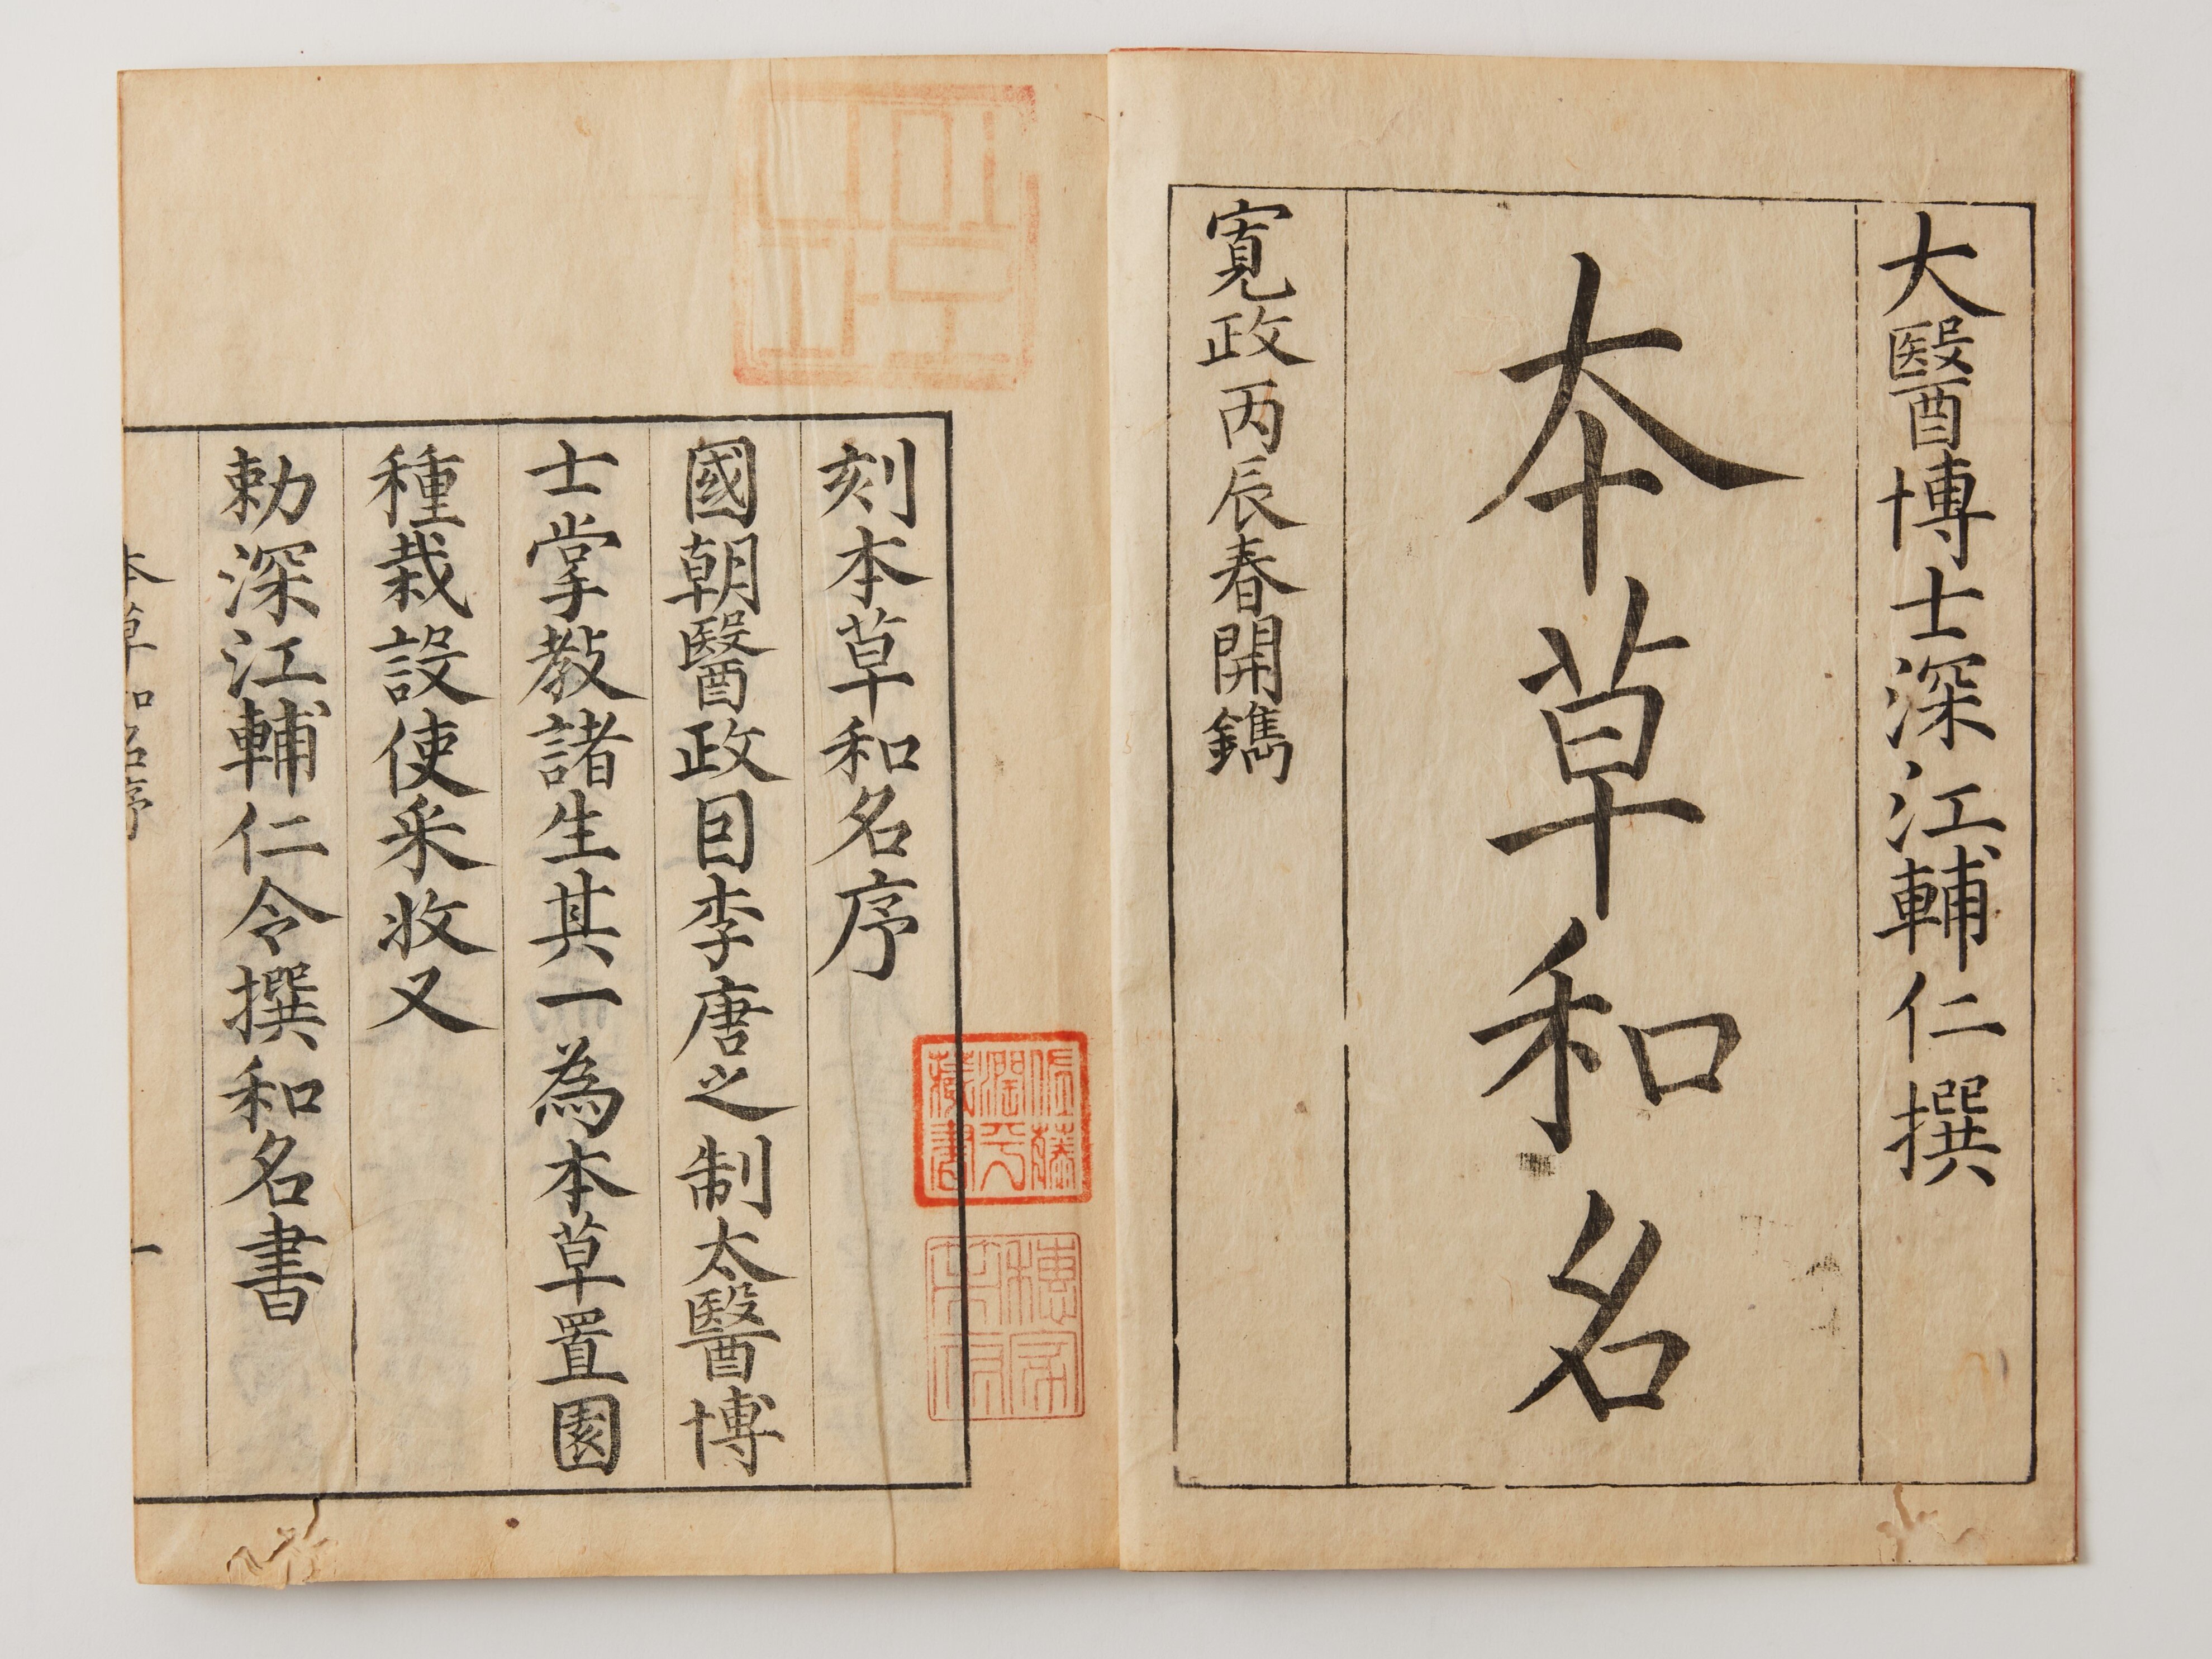 大醫博士深江輔仁撰
本草和名
寛政丙辰春開鐫
刻本草和名序
國朝醫政因李唐之制太醫博
士掌教諸生其一為本草置園
種栽設使采收又
勅深江輔仁令撰和名書
本草和名序
一
伊藤
潤三
蔵書